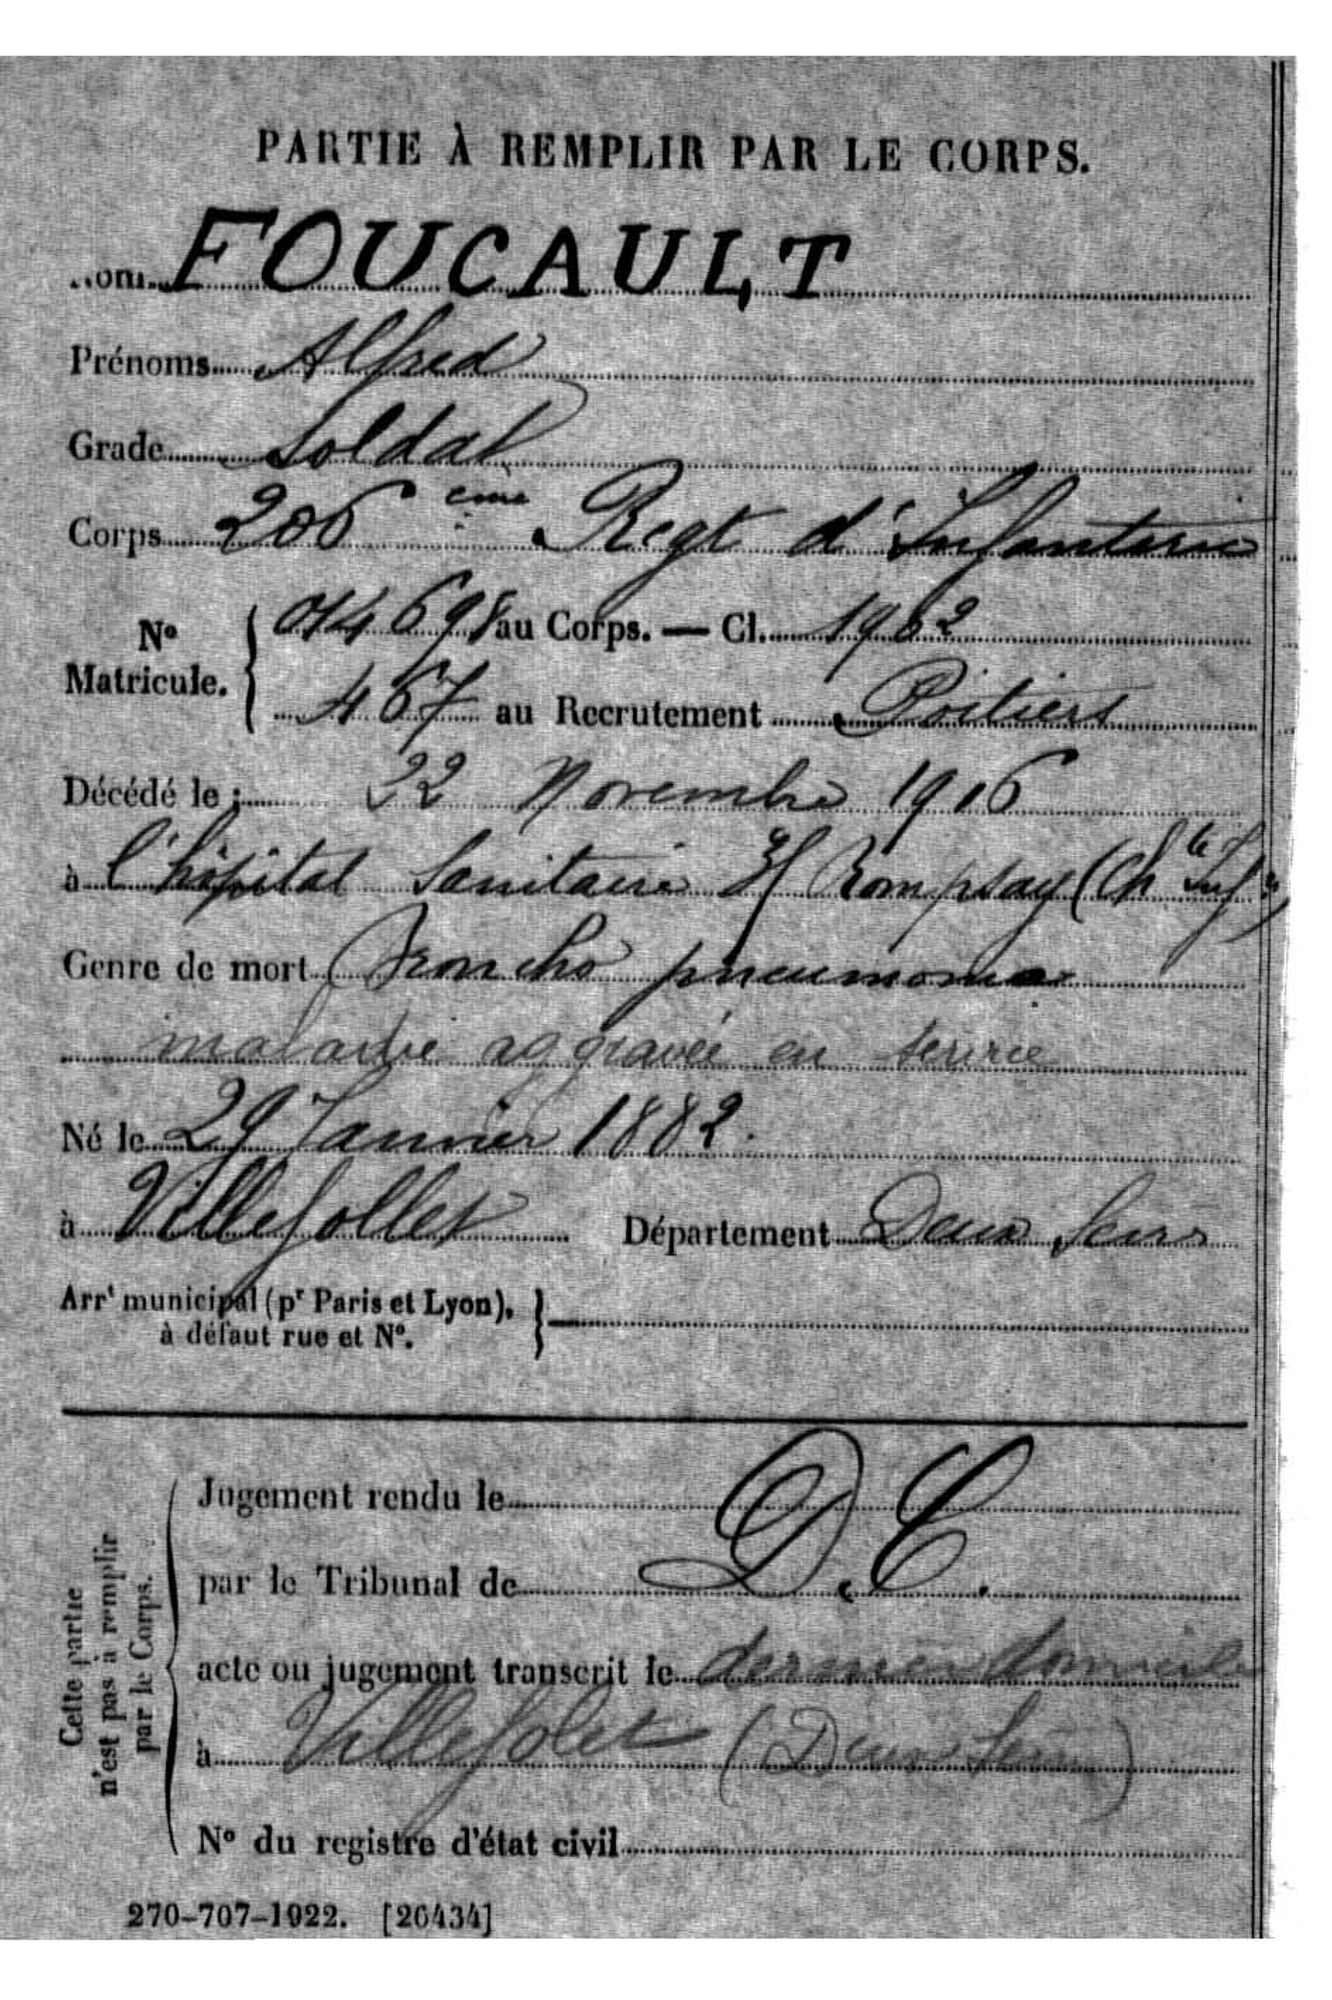 PARTIE À REMPLIR PAR LE CORPS.
Nom FOUCAULT
Prénoms Alfred
Grade Soldat
Corps 206 eme Regt d'Infanterie
N° Matricule. 014698 au Corps. — Cl. 1902
467 au Recrutement Poitiers
Décédé le : 22 Novembre 1916
à l'hôpital Sanitaire Rompsay (Ch te Inf re)
Genre de mort Broncho pneumonie
maladie aggravée en service
Né le 29 Janvier 1882.
à Villefollet Département Deux Sevres
Arr t municipal (p r Paris et Lyon), à défaut rue et N°.
Cette partie n'est pas à remplir par le Corps.
Jugement rendu le
par le Tribunal de D.C.
acte ou jugement transcrit le dernier domicile
à Villefolet (Deux Sevres)
N° du registre d'état civil
270-707-1922. [26434]